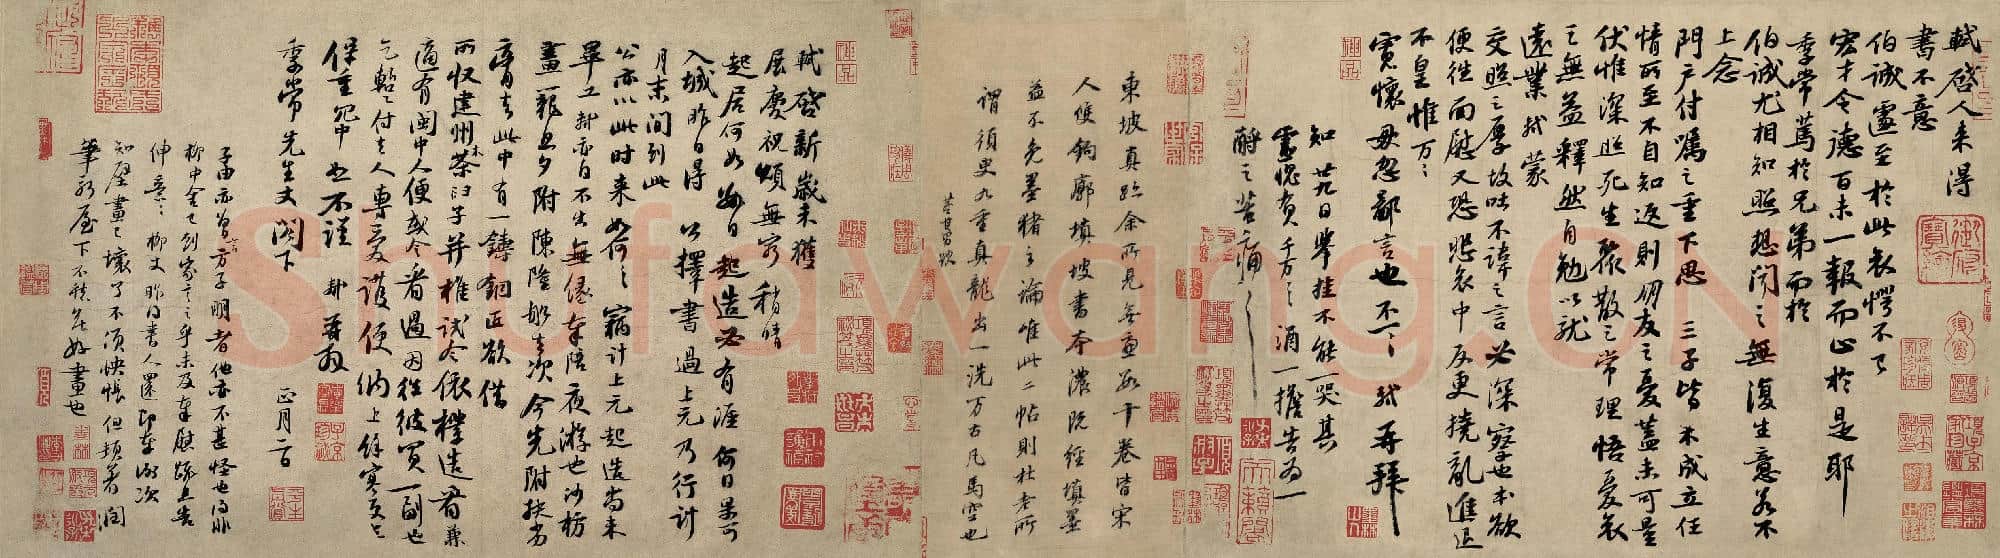 軾啓人来得
書不意
伯誠遽至於此哀愕不已
宏才令德百未一報而止於是耶
季常篤於兄弟而於
伯誠尤相知照想聞之無復生意若不
上念
門户付囑之重下思三子皆未成立任
情所至不自知返則朋友之憂蓋未可量
伏惟深照死生聚散之常理悟憂哀
之無益釋然自勉以就
遠業軾蒙
交照之厚故吐不諱之言必深察也本欲
便往面慰又恐悲哀中反更撓亂進退
不皇惟万万
寬懷毋忽鄙言也不一一軾再拜
知廿九日舉挂不能一哭其
靈愧負千万千万酒一擔告為一
酹之苦痛苦痛
東坡真跡余所見無慮數十卷皆宋
人雙鉤廓填坡書本濃既經填墨
益不免墨豬之論唯此二帖則杜老所
謂須臾九重真龍出一洗万古凡馬空也
董其昌跋
軾啓新歲未獲
展慶祝頌無窮稍晴
起居何如數日起造必有涯何日果可
入城昨日得公擇書過上元乃行計
月末間到此
公亦以此時来如何如何竊計上元起造尚未
畢工軾亦自不出無緣奉陪夜游也沙枋
畫籠旦夕附陳隆船去次今先附扶劣
膏去此中有一鑄銅匠欲借
所收建州木茶臼子并椎試令依樣造看兼
適有閩中人便或令看過因往彼買一副也
乞暫付去人專愛護便納上餘寒更乞
保重冗中恕不謹軾再拜
季常先生丈閣下
正月二日
子由亦曾言方子明者他亦不甚怪也得非
柳中舍已到家言之乎未及奉慰疏且告
伸意伸意柳丈昨得書人還即奉謝次
知壁畫已壞了不須怏悵但頓著潤
筆新屋下不愁無好畫也
Shufawang.CN